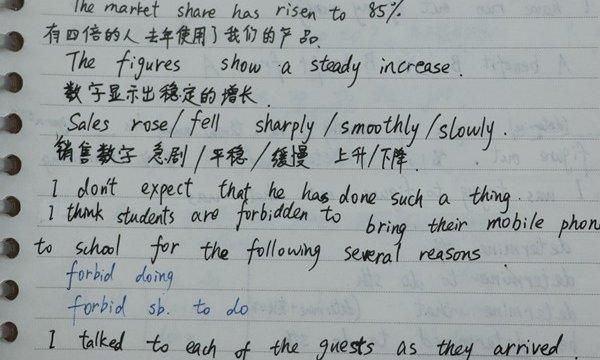 The market share has risen to 85%
有四倍的人去年使用了我们的产品.
The figures show a steady increase.
数字显示出稳定的增长.
Sales rose/fell sharply/smoothly/slowly.
销售数字 急剧/平稳/缓慢 上升/下降.
I don't expect that he has done such a thing.
I think students are forbidden to bring their mobile phon
to school for the following several reasons.
forbid doing
forbid sb. to do
I talked to each of the guests as they arrived.